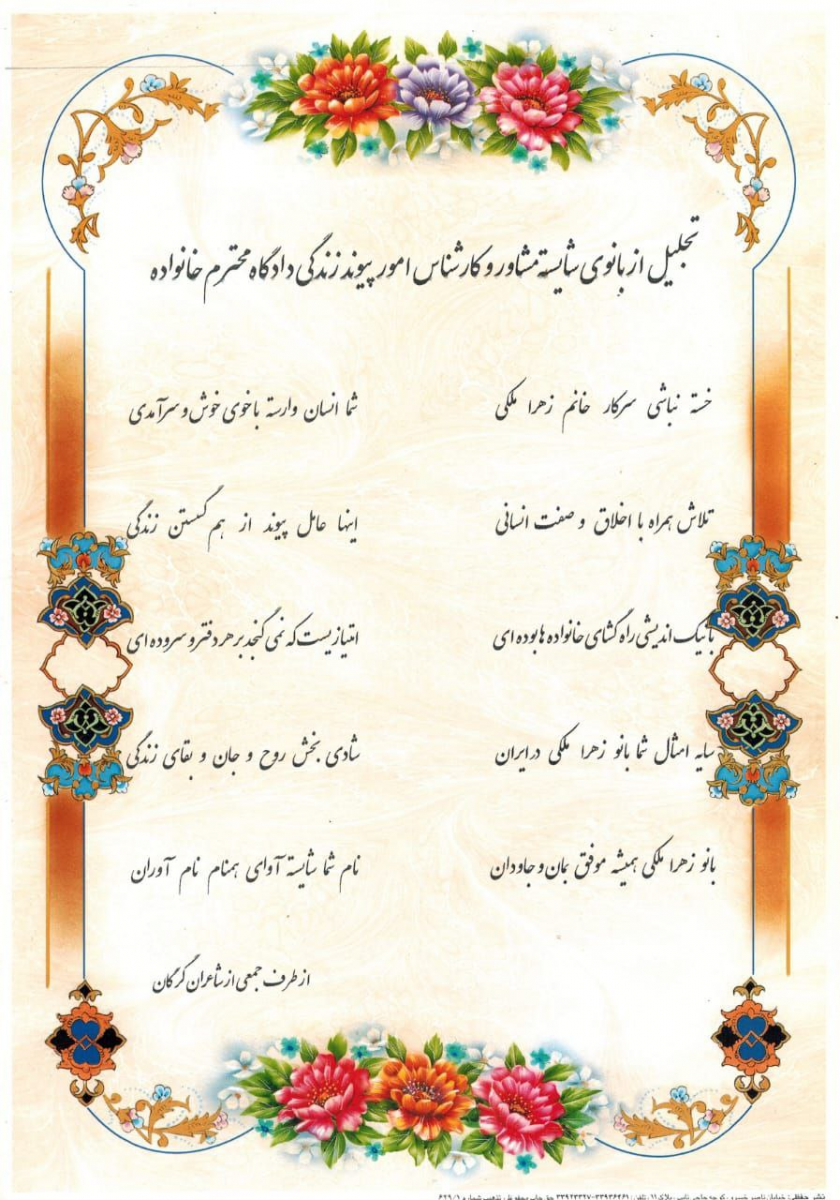 تجلیل از بانوی شایسته مشاور و کارشناس امور پیوند زندگی دادگاه محترم خانواده
خسته نباشی سرکار خانم زهرا ملکی شما انسان وارسته با خوی خوش و سرآمدی
تلاش همراه با اخلاق و صفت انسانی اینها عامل پیوند از هم گسستن زندگی
با نیک اندیشی راه گشای خانواده ها بوده ای امتیازیست که نمی گنجد بر هر دفتر و سروده ای
سایه امثال شما بانو زهرا ملکی در ایران شادی بخش روح و جان و بقای زندگی
بانو زهرا ملکی همیشه موفق بمان و جاودان نام شما شایسته آوای همنام نام آوران
از طرف جمعی از شاعران گرگان